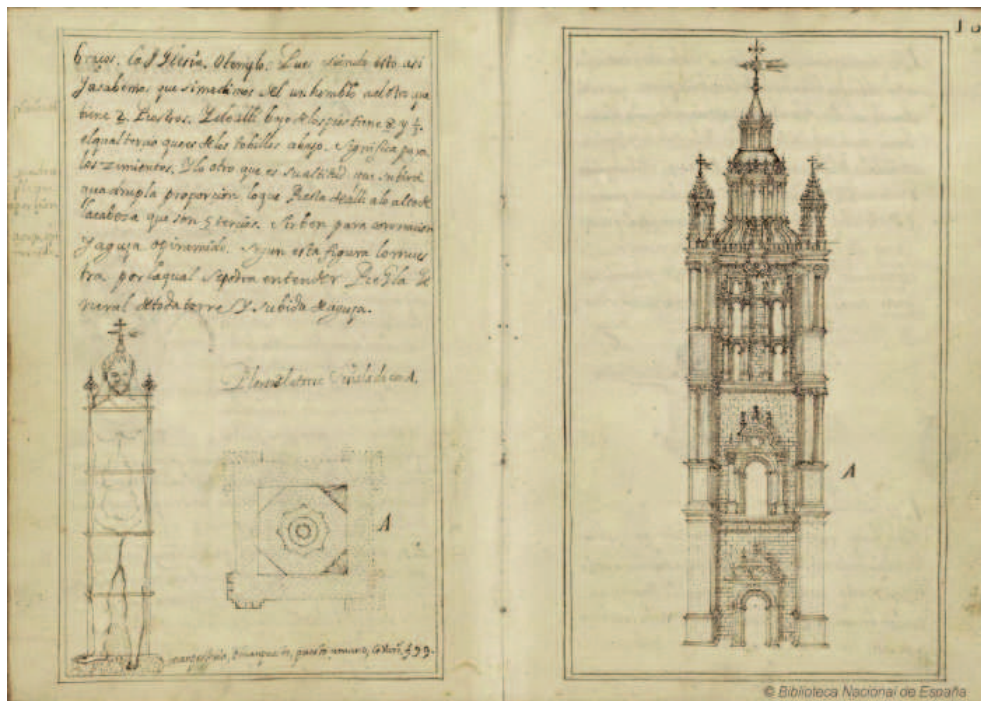 braços. la Iglesia. O templo. Pues siendo esto asi
Ya sabemos que si medimos del un hombro al otro que
tiene 2. Rostros. Y de alli bajo de los pies tiene 8 y 1/3.
el qual tercio que es de los tobillos abajo. significa para
los zimientos. Y lo otro que es su altitud
quadrupla proporcion lo que Resta de alli a lo alto de
la cabeza que son 5 tercios. sirben para coronacion
Y aguja. o piramide. segun esta figura lo mues
tra por la qual se podra entender Regla Ge
neral de toda torre Y subida de aguja.
Planta de la torre señalada con A.
A
A
© Biblioteca Nacional de España